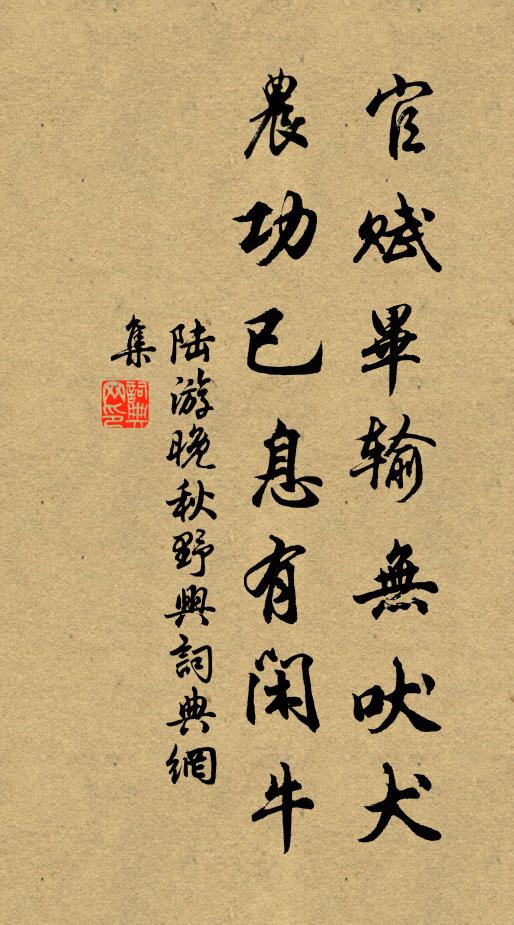 官賦畢輸無吠犬
農功已息有閑牛
陆游晚秋野興詞典網
集
詞典网印